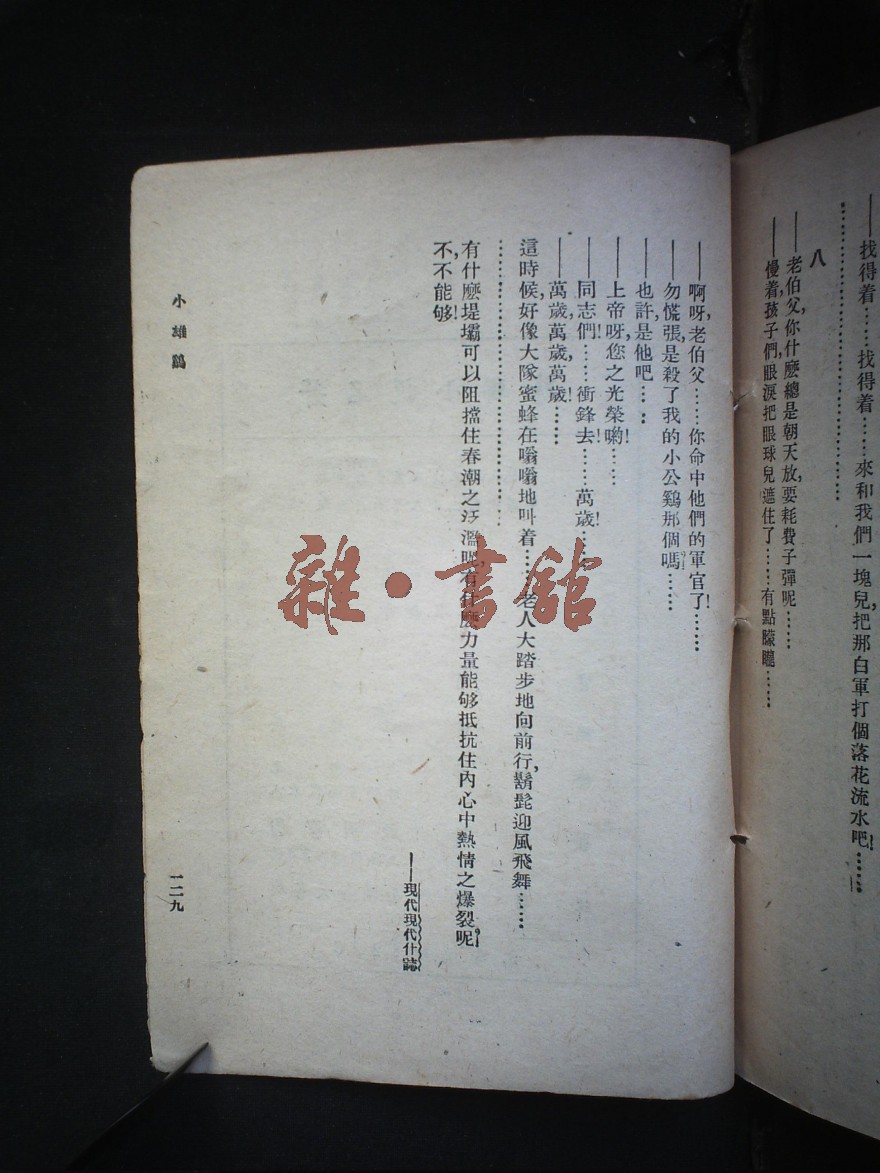 ——找得着……找得着……來和我們一塊兒,把那白軍打個落花流水吧!……
……………………………………
八
——老伯父,你什麼總是朝天放,要耗費子彈呢……
——慢着,孩子們,眼淚把眼球兒遮住了……有點矇矓……
——啊呀,老伯父……你命中他們的軍官了!……
——勿慌張,是殺了我的小公鷄那個嗎?……
——也許是他吧……
——上帝呀,您之光榮喲!……
——同志們!……衝鋒去!……萬歲!……
——萬歲,萬歲,萬歲!……
這時候,好像大隊蜜蜂在嗡嗡地叫着……老人大踏步地向前行,鬍髭迎風飛舞……
……………………………………
有什麼堤壩可以阻擋住春潮之泛濫呢?有什麼力量能够抵抗住內心中熱情之爆裂呢?
不,不能够!
——現代現代什誌
小雄鷄
一二九
雜·書館